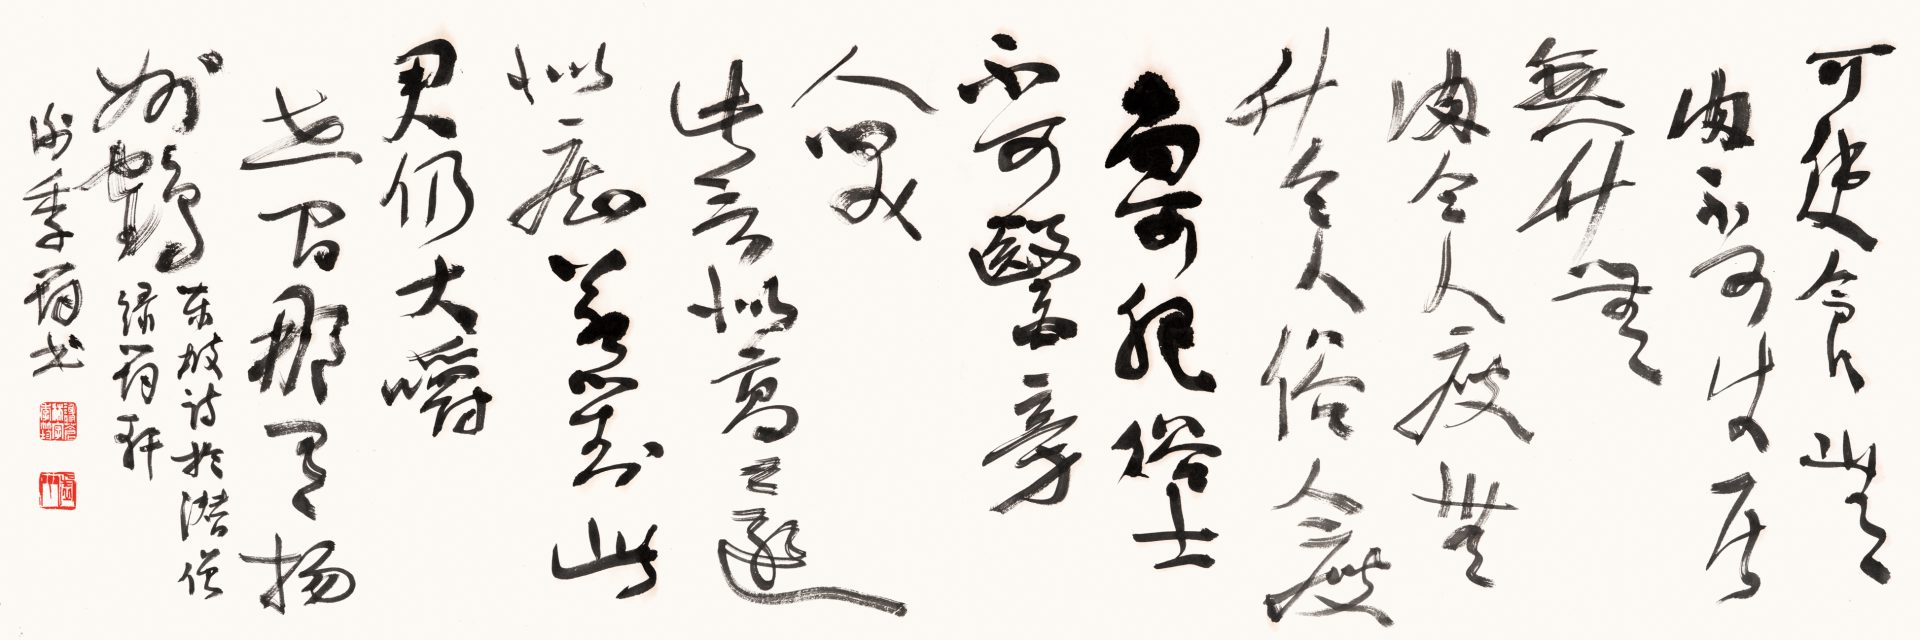 可使食無
肉不可使居
無竹無
肉令人瘦無
竹令人俗人瘦
尚可肥俗士
不可醫旁
人笑
此言似高還
似癡若對此
君仍大嚼
世間那有揚
州鶴
東坡詩於潛僧
綠筠軒
謝季筠書